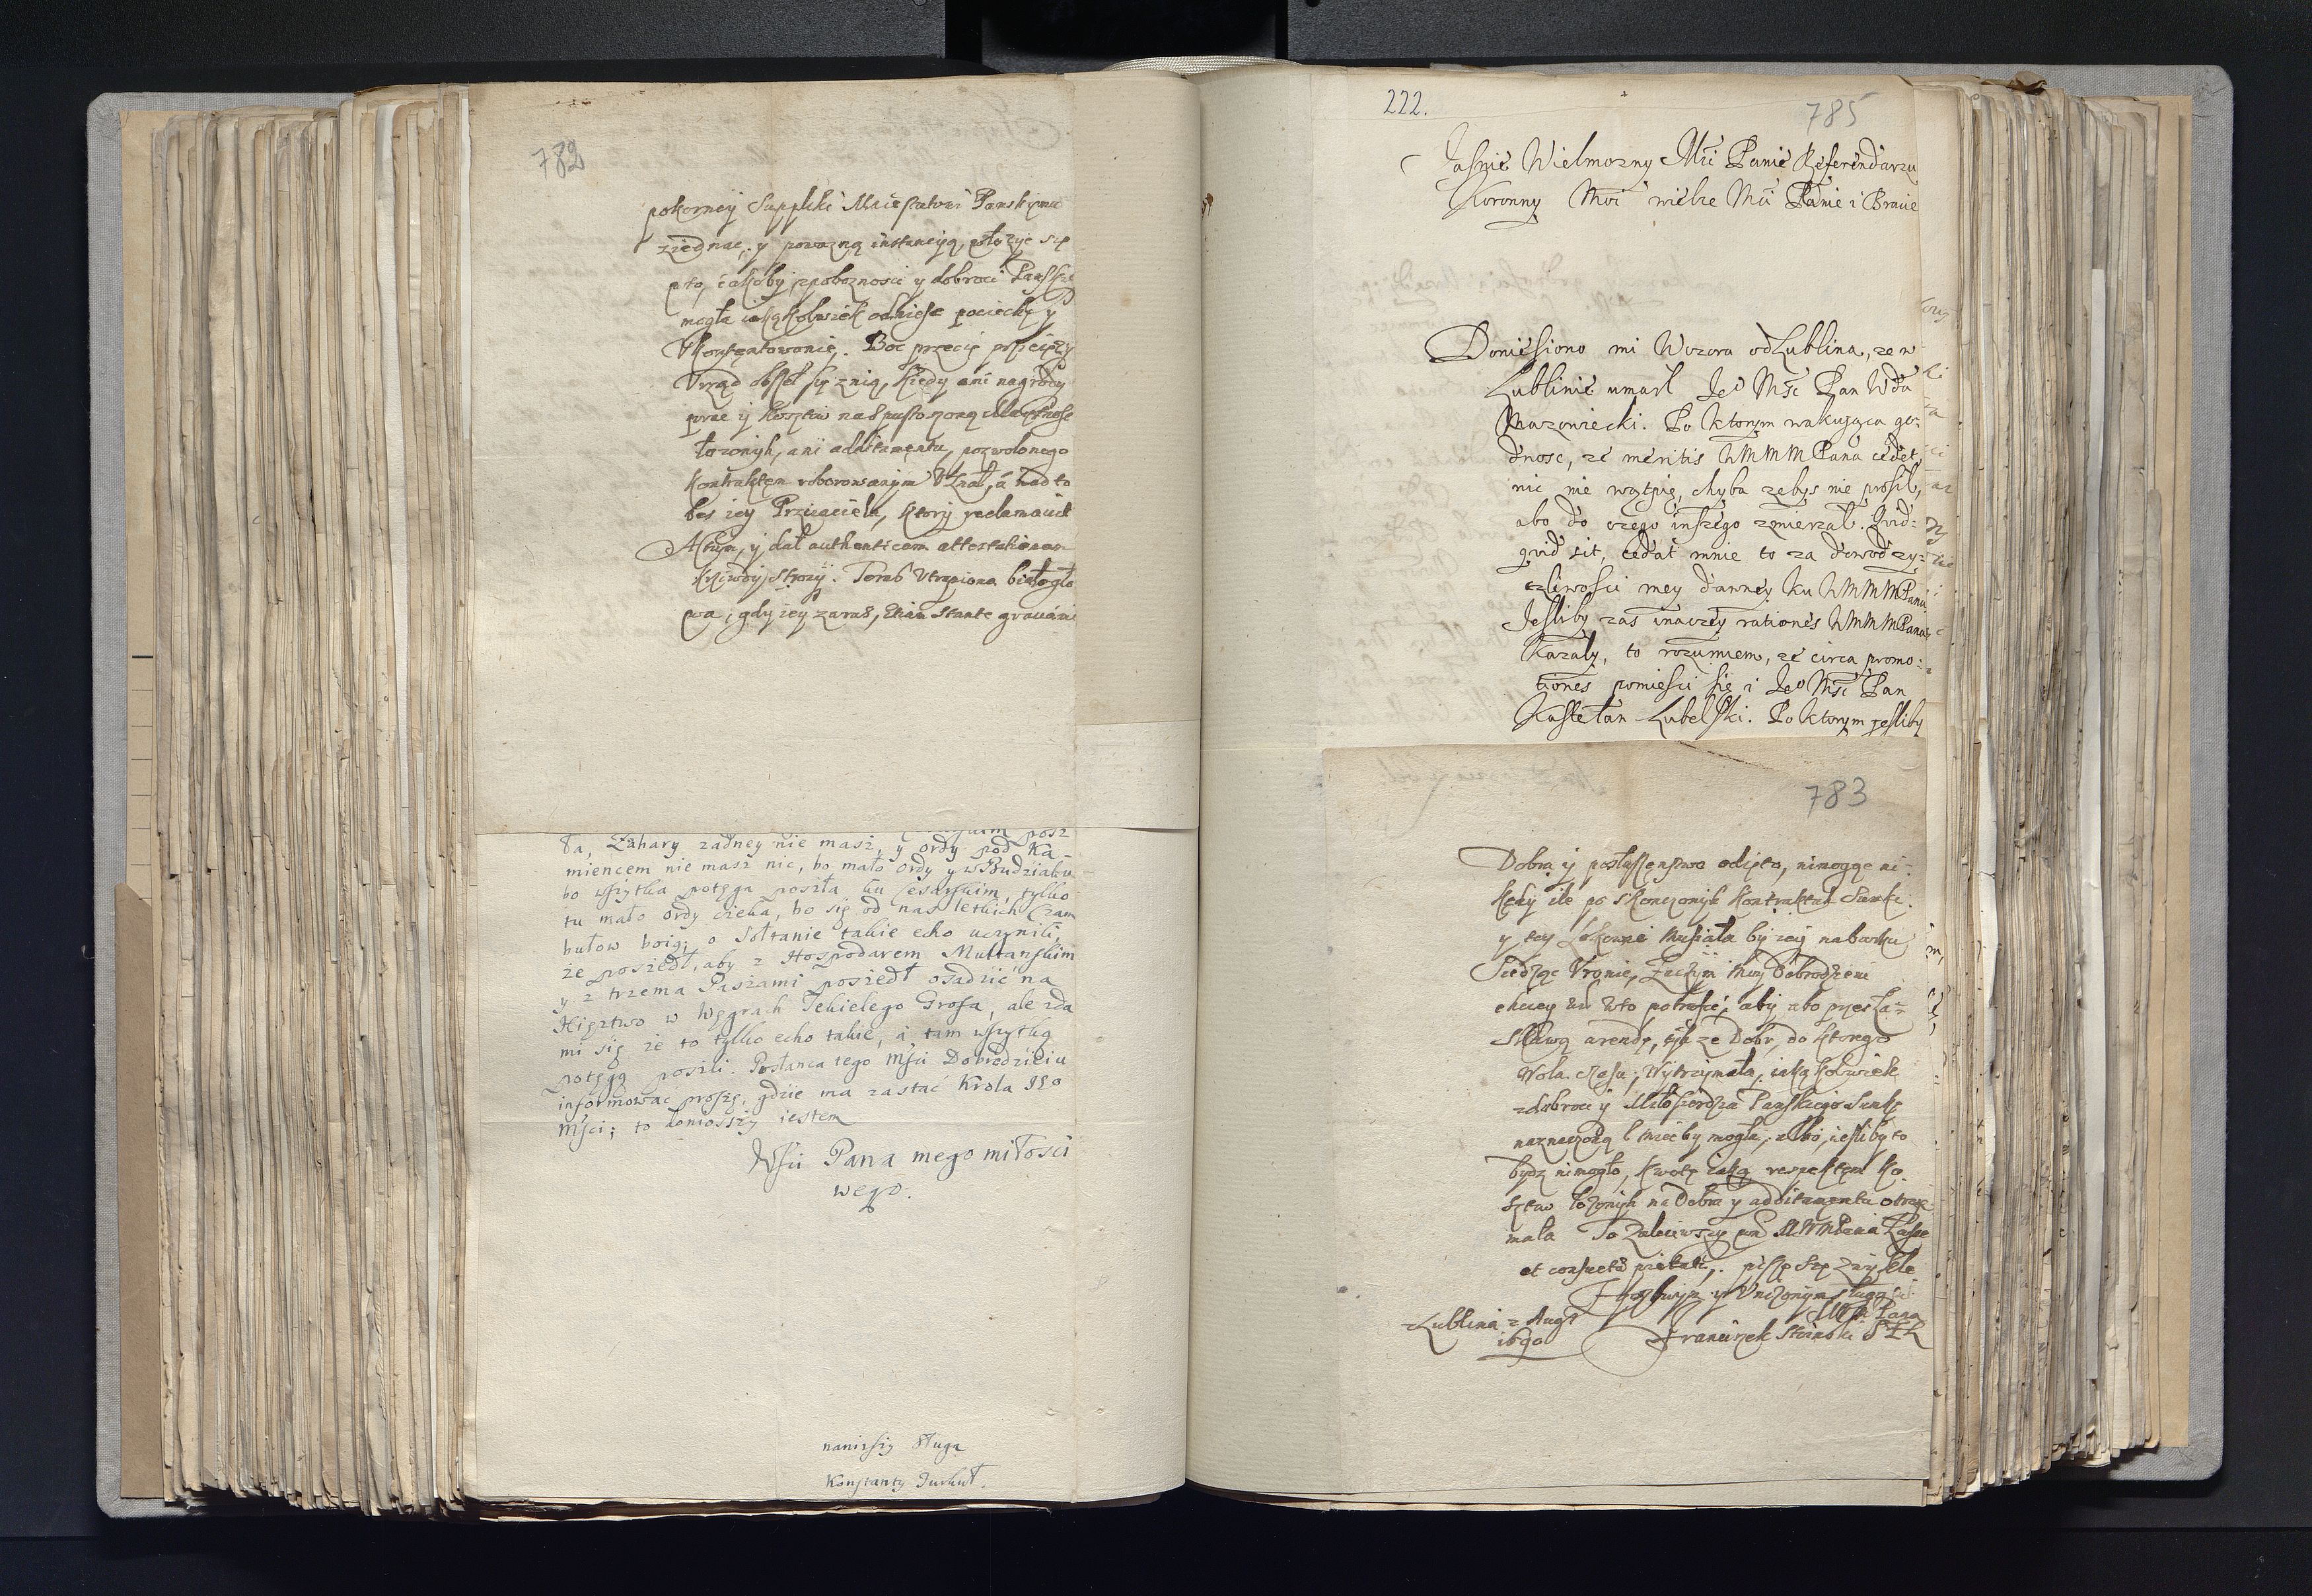 782
pokorney Supplki Maiestatowi Panskiemu
ziednac, y powazną instancyią, włozyc się
o to, iakoby z poboznosci y dobroci Panskiey
mogła iakąkolwiek odniesc pociechę y
Ukontętowanie. Boc przecię
Urząd obszeł się z nią, kiedy ani nagrody
prac y kosztow nad pustoszoną
łozonych, ani additamentu, pozwolonego
kontraktem roborowanym Uznał, a nad to
bes iey Przyiaciela, ktory reclamavit
Actum, y dał authenticam attestationem
krzywdy. Teras Utrapiona białogło
wa, gdy iey zaraz, etiam stante
ła, Zahary zadney nie masz, y ordy pod Ka-
miencem nie masz nic, bo mało ordy y w Budziaku
bo wszytka potęga poszła ku Cesarskim, tylko
tu mało ordy czeka, bo się od nas letkich Czam
bułow boią; o Sołtanie takie echo uczynili,
że poszedł, aby z Hospodarem Multanskim
y z trzema Paszami poszedł osadzić na
Xięztwo w Węgrach Tekielego Grofa, ale zda
mi się że to tylko echo takie, a tam wszytką
potęgą poszli. Posłanca tego Mści Dobrodzieiu
informować proszę, gdzie ma zastać Krola Jeo
Mści; to doniosszy iestem
WMści Pana mego miłości
wego.
naniższy sługa
Konstanty Turkuł.
222.
785
Jasnie Wielmozny Mci Panie Referendarzu
Koronny Moi wielce Mci Panie i Bracie
Doniesiono mi Wczora od Lublina, ze w
Lublinie umarl Jeo Mśc Pan Wda
Mazowiecki. Po ktorym wakująca go-
dnosc, ze meritis WMMM Pana cedet,
nic nie wątpię, chyba zebys nie prosił,
abo do czego inszego zmierzał. Quid-
quid sit, cedat mnie to za dowod zy-
czliwosci mey dawney ku WMMMPanu.
Jesliby zas inaczey rationes WMMMPana
Kazały, to rozumiem, ze circa promo-
tiones pomiesci się i Jeo Mśc Pan
Kasztelan Lubelski. Po ktorym jesliby
783
Dobra y posłuszenstwo odięto, nimogąc ni-
kędy ile po skonczonych kontraktach Sandz.
y tey Lokowac musiała by iey na barku
Siedząc Uronic, Zaczym moy Dobrodzieiu
chciey w to potrafić, aby abo przesła-
skawą arendę, tych ze Dobr, do ktorego
Wola czasu, Wytrzymała, iaką kolwiek
z dobroci y Miłosierdzia Panskiego Summę
naznaczoną miec by mogła, albo, iesliby to
bydz nimogło, kwotę iaką respektem ko-
sztow łozonych na Dobra y additamentu otrzy
mała To Zaleciwszy WMMPana Łasce
et consueta pietate, piszę się Zwykle
Zyczliwym y Unizonym sługą
WMMPana
z Lublina 2 Augi
1690
Franciszek Stoinski PZL